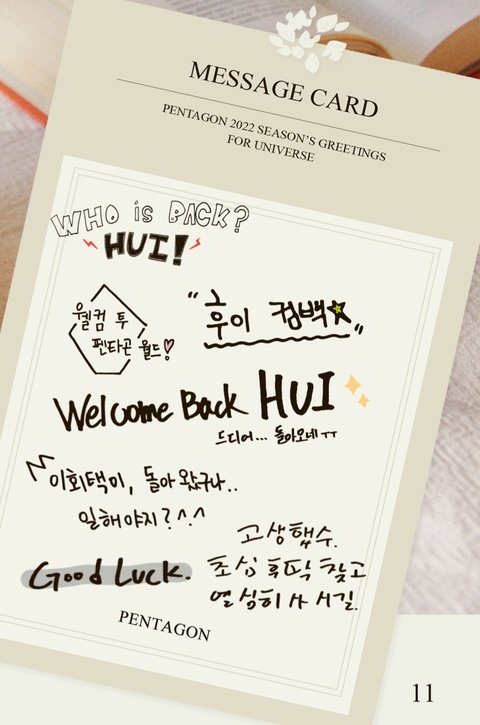 MESSAGE CARD
PENTAGON 2022 SEASON'S GREETINGS
FOR UNIVERSE
WHO is BACK?
HUI!
웰컴 투
펜타곤 월드!
"후이 컴백☆"
Welcome Back HUI
드디어... 돌아오네ㅠㅠ
이회택이, 돌아 왔구나..
일해야지? ^.^
고생했수.
Good Luck.
초심 후딱 찾고
열심히 사시길.
PENTAGON
11